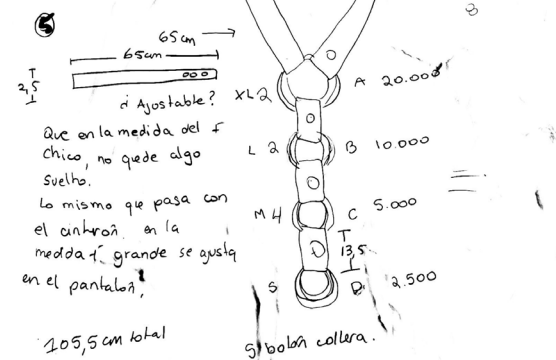 5
8
65cm
65cm
2,5
¿Ajustable?
Que en la medida del +
chico, no quede algo
suelto.
Lo mismo que pasa con
el cinturón, en la
medida + grande se ajusta
en el pantalón.
105,5cm total
XL 2 A 20.000
L 2 B 10.000
M 4 C 5.000
13,5
S D 2.500
5 botón collera.